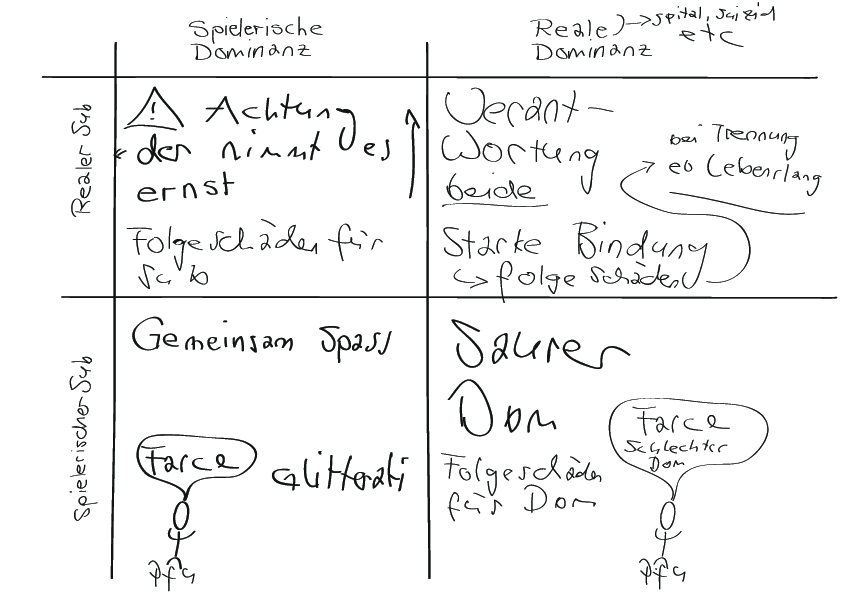 Spielerische
Dominanz
Reale → spital, suizid
Dominanz etc
Realer Sub
! Achtung
der nimmt es
ernst
Folgeschäden für
Sub
Verant-
wortung
beide
Starke Bindung
↪ folgeschäden
bei Trennung
eb Lebenslang
Spielerischer Sub
Gemeinsam Spass
Farce
Glitterati
Saurer
Dom
Folgeschäden
für Dom
Farce
Schlechter
Dom